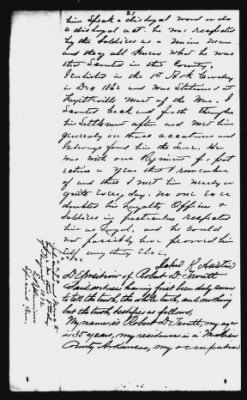 21
him speak a disloyal word or do
a disloyal act. he was respected
by the Soldiers as a Union man
and they all knew what he was
that served in this County,
I enlisted in the 1st Ark Cavalry
in Dec 1862 and was stationed at
Fayetteville most of the War. I
Scouted back and forth through
his Settlement often and met him
generaly on those occasions and
I always found him the same. He
was with our Regiment
active a year that I remember
of and thus I met him nearly or
quite every day. no one ever
doubted his loyalty Officers &
Soldiers in particular respected
him as loyal, and he could
not possibly have proved him
self any thing else,
John R. Austin
Deposition of Robert D.
Said witness having first been duly sworn
to tell the truth, the whole truth, and nothing
but the truth, testifies as follows,
My name is Robert D. my age
is 35 years, my residence is
County Arkansas, my occupation